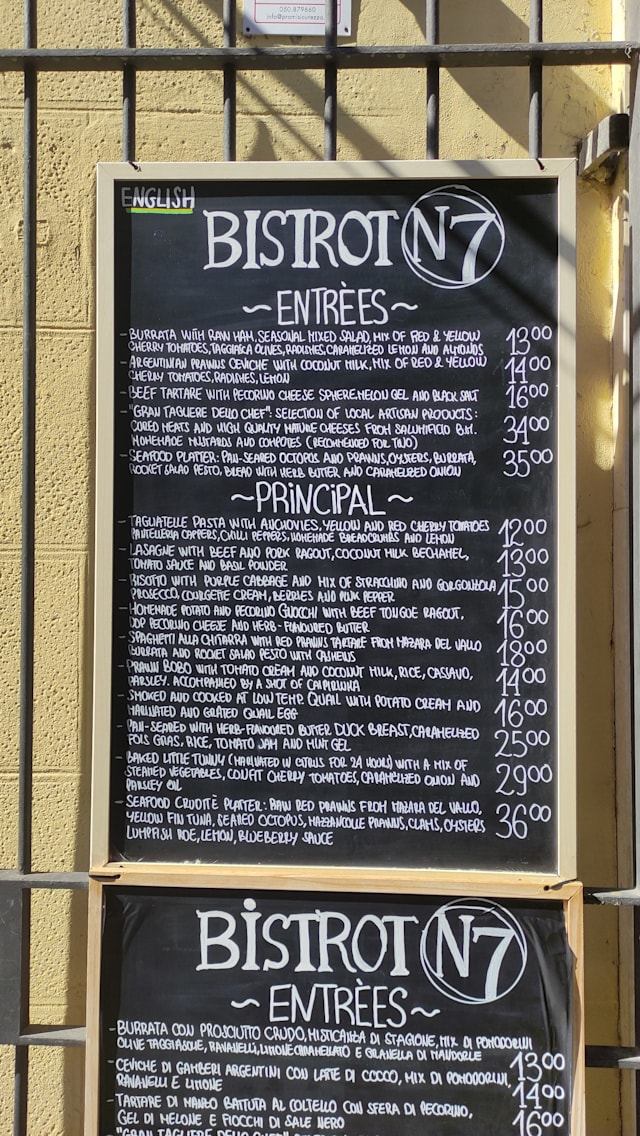 050.879660
info@promisicurezza
ENGLISH
BISTROT N7
~ENTRÈES~
- BURRATA WITH RAW HAM, SEASONAL MIXED SALAD, MIX OF RED & YELLOW
CHERRY TOMATOES, TAGGIASCA OLIVES, RADISHES, CARAMELIZED LEMON AND ALMONDS 1300
- ARGENTINIAN PRAWNS CEVICHE WITH COCONUT MILK, MIX OF RED & YELLOW
CHERRY TOMATOES, RADISHES, LEMON 1400
- BEEF TARTARE WITH PECORINO CHEESE SPHERE, MELON GEL AND BLACK SALT 1600
- "GRAN TAGLIERE DELLO CHEF": SELECTION OF LOCAL ARTISAN PRODUCTS:
CURED MEATS AND HIGH QUALITY MATURE CHEESES FROM SALUMIFICIO B.M. 3400
HOMEMADE MUSTARDS AND COMPOTES (RECOMMENDED FOR TWO)
- SEAFOOD PLATTER: PAN-SEARED OCTOPUS AND PRAWNS, OYSTERS, BURRATA,
ROCKET SALAD PESTO, BREAD WITH HERB BUTTER AND CARAMELIZED ONION 3500
~PRINCIPAL~
- TAGLIATELLE PASTA WITH ANCHOVIES, YELLOW AND RED CHERRY TOMATOES
PANTELLERIA CAPPERS, CHILLI PEPPERS, HOMEMADE BREADCRUMBS AND LEMON 1200
- LASAGNE WITH BEEF AND PORK RAGOUT, COCONUT MILK BECHAMEL,
TOMATO SAUCE AND BASIL POWDER 1300
- RISOTTO WITH PURPLE CABBAGE AND MIX OF STRACCHINO AND GORGONZOLA
PROSECCO, COURGETTE CREAM, BERRIES AND PINK PEPPER 1500
- HOMEMADE POTATO AND PECORINO GNOCCHI WITH BEEF TONGUE RAGOUT,
DOP PECORINO CHEESE AND HERB-FLAVOURED BUTTER 1600
- SPAGHETTI ALLA CHITARRA WITH RED PRAWNS TARTARE FROM MAZARA DEL VALLO
BURRATA AND ROCKET SALAD PESTO WITH CASHEWS 1800
- PRAWN BOBO WITH TOMATO CREAM AND COCONUT MILK, RICE, CASSAVO,
PARSLEY. ACCOMPANIED BY A SHOT OF CAIPIRINHA 1400
- SMOKED AND COOKED AT LOW TEMP. QUAIL WITH POTATO CREAM AND
MARINATED AND GRATED QUAIL EGG 1600
- PAN-SEARED WITH HERB-FLAVOURED BUTTER DUCK BREAST, CARAMELIZED
FOIS GRAS, RICE, TOMATO JAM AND MINT GEL 2500
- BAKED LITTLE TUNNY (MARINATED IN CITRUS FOR 24 HOURS) WITH A MIX OF
STEAMED VEGETABLES, CONFIT CHERRY TOMATOES, CARAMELIZED ONION AND 2900
PARSLEY OIL
- SEAFOOD CRUDITÈ PLATTER: RAW RED PRAWNS FROM MAZARA DEL VALLO,
YELLOW FIN TUNA, SEARED OCTOPUS, MAZZANCOLLE PRAWNS, CLAMS, OYSTERS 3600
LUMPFISH ROE, LEMON, BLUEBERRY SAUCE
BISTROT N7
~ENTRÈES~
- BURRATA CON PROSCIUTTO CRUDO, MISTICANZA DI STAGIONE, MIX DI POMODORINI
OLIVE TAGGIASCHE, RAVANELLI, LIMONE CARAMELLATO E GRANELLA DI MANDORLE 1300
- CEVICHE DI GAMBERI ARGENTINI CON LATTE DI COCCO, MIX DI POMODORINI,
RAVANELLI E LIMONE 1400
- TARTARE DI MANZO BATTUTA AL COLTELLO CON SFERA DI PECORINO,
GEL DI MELONE E FIOCCHI DI SALE NERO 1600
- "GRAN TAGLIERE DELLO CHEF":